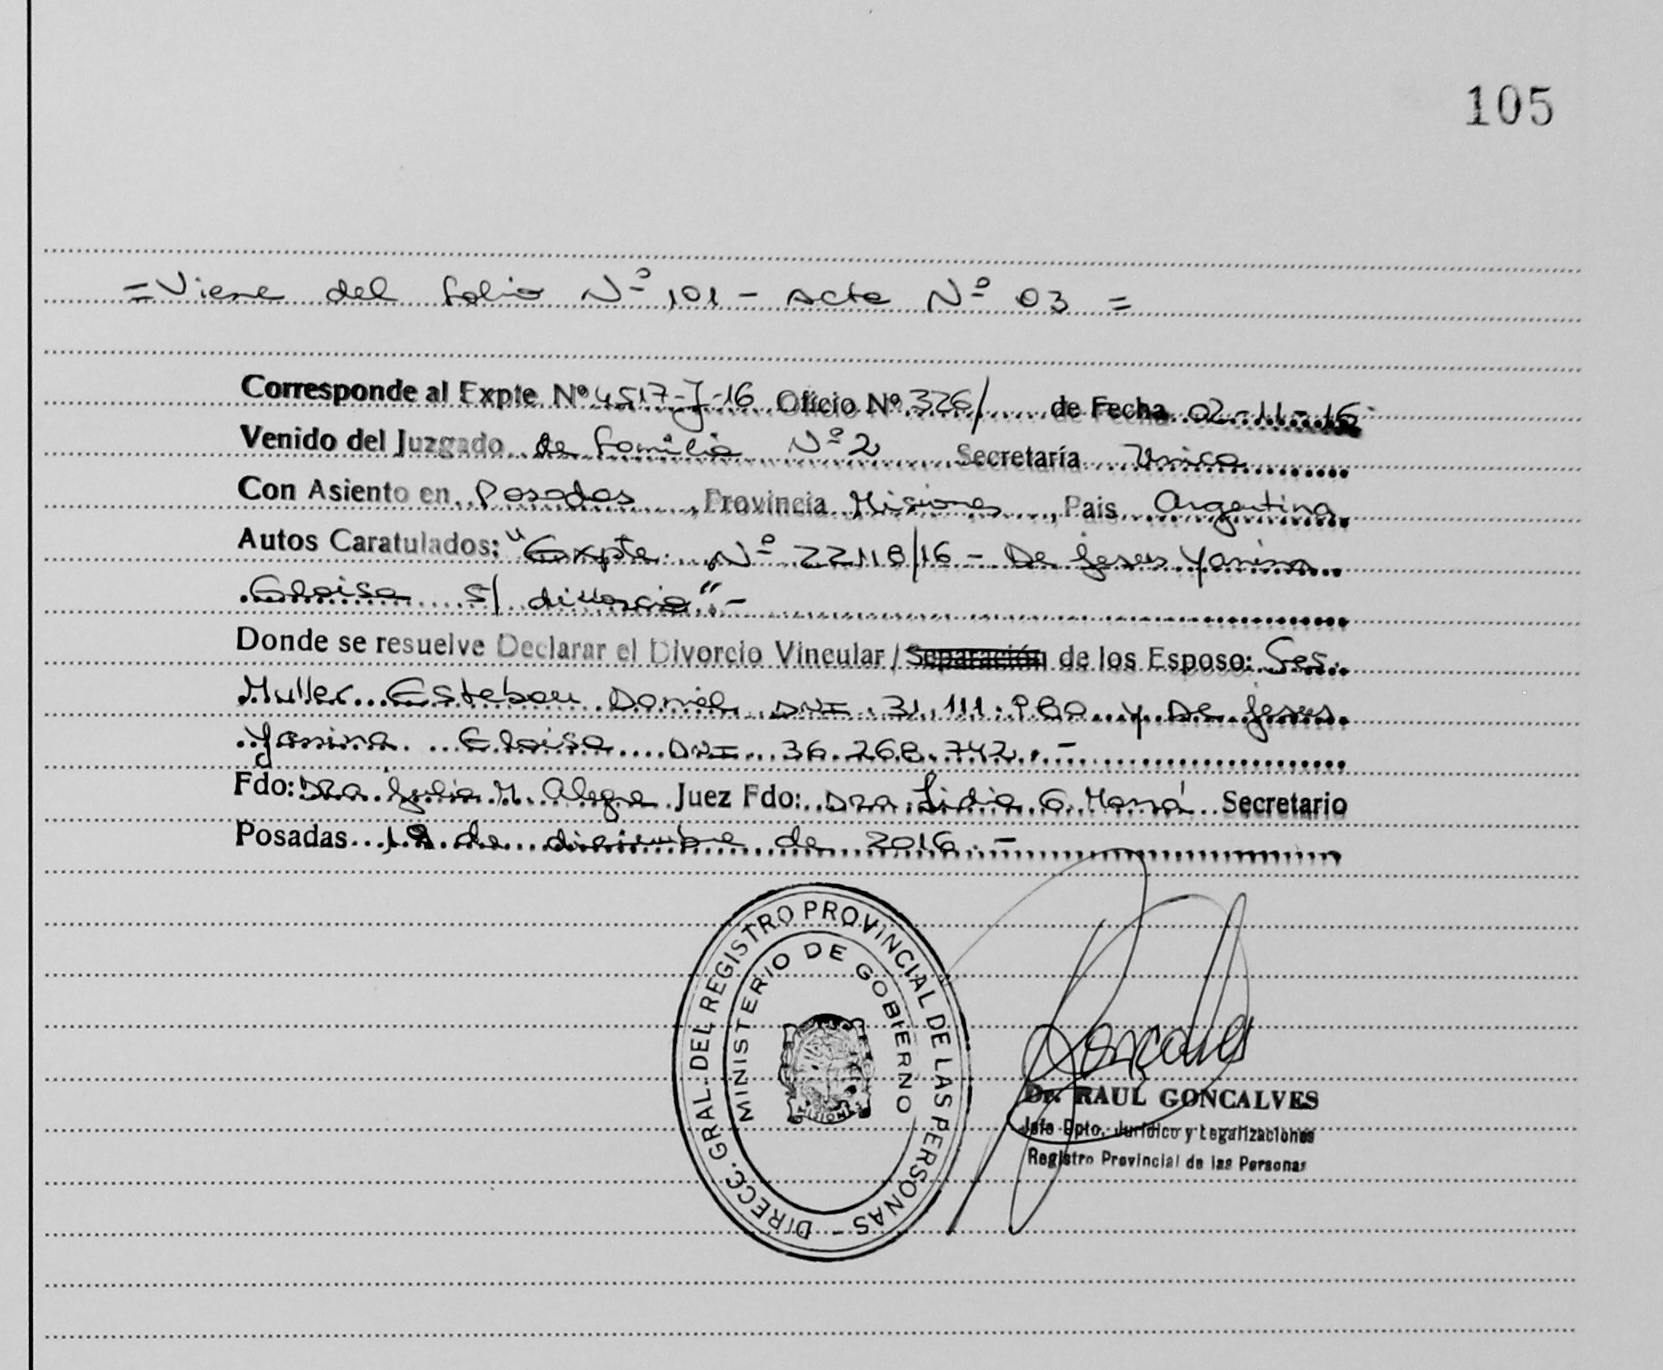 105
=Viene del folio Nº 101 - Acta Nº 03 =
Corresponde al Expte Nº 4517-J-16 Oficio Nº 326/ de Fecha 02-11-16
Venido del Juzgado de Familia Nº 2 Secretaría Unica
Con Asiento en Posadas, Provincia Misiones, Pais Argentina
Autos Caratulados: "Expte Nº 22118/16 - De jesus Yanina
Eloisa s/ divorcio".-
Donde se resuelve Declarar el Divorcio Vincular/Separación de los Esposo: Sres.
Muller Esteban Daniel DNI 31.111.980 y De jesus
Yanina Eloisa DNI 36.268.742.-
Fdo: Dra Julia M. Alegre Juez Fdo: Dra Lidia G. Secretario
Posadas de diciembre de 2016.-
DIRECC. GRAL. DEL REGISTRO PROVINCIAL DE LAS PERSONAS -
MINISTERIO DE GOBIERNO
MISIONES
Goncalves
Dr. RAUL GONCALVES
Jefe Dpto. Jurídico y Legalizaciones
Registro Provincial de las Personas